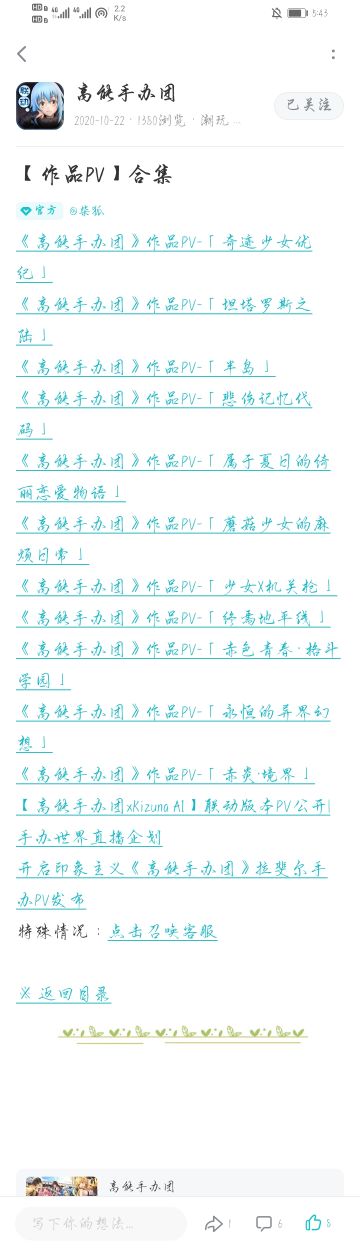 2.2
K/s
5:43
高能手办团
2020-10-22 · 1380浏览 · 潮玩 ...
已关注
【作品PV】合集
官方 @柒狐
《高能手办团》作品PV-「奇迹少女优
纪」
《高能手办团》作品PV-「坦塔罗斯之
陆」
《高能手办团》作品PV-「半岛」
《高能手办团》作品PV-「悲伤记忆代
码」
《高能手办团》作品PV-「属于夏日的绮
丽恋爱物语」
《高能手办团》作品PV-「蘑菇少女的麻
烦日常」
《高能手办团》作品PV-「少女X机关枪」
《高能手办团》作品PV-「终焉地平线」
《高能手办团》作品PV-「赤色青春·格斗
学园」
《高能手办团》作品PV-「永恒的异界幻
想」
《高能手办团》作品PV-「赤炎·境界」
【高能手办团xKizuna AI】联动版本PV公开|
手办世界直播企划
开启印象主义《高能手办团》拉斐尔手
办PV发布
特殊情况：点击召唤客服
※ 返回目录
高能手办团
写下你的想法...
1
6
8